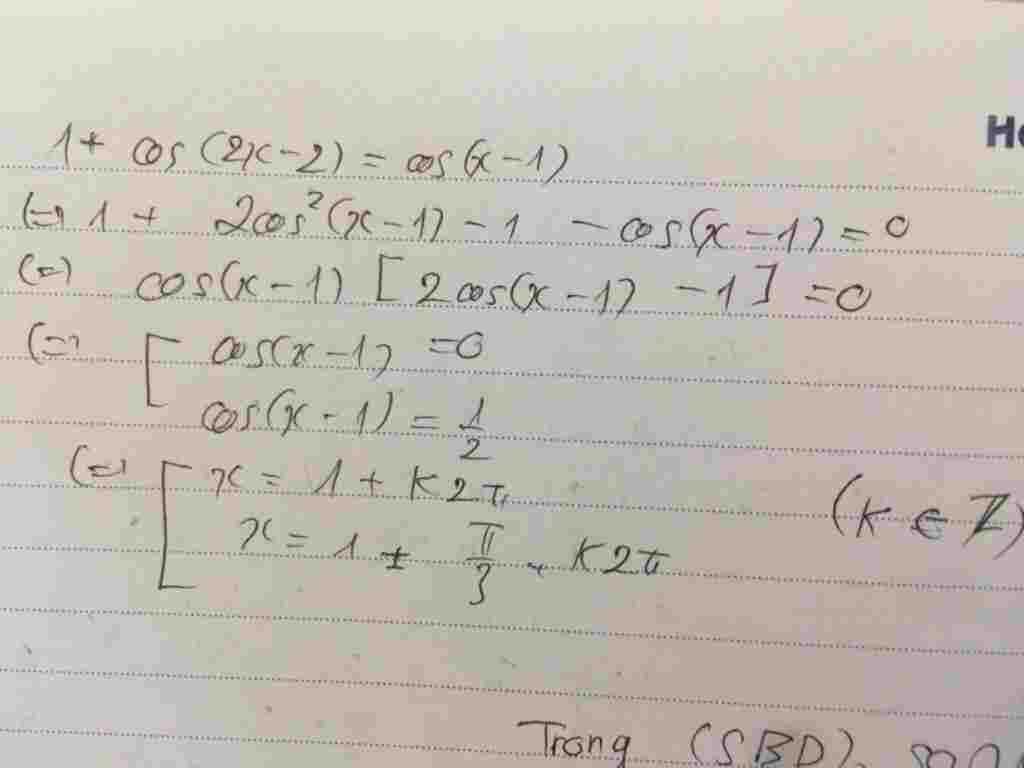 Ho
1+ cos(2x-2) = cos(x-1)
(=) 1 + 2cos²(x-1) - 1 - cos(x-1) = 0
(=) cos(x-1) [2cos(x-1) - 1] = 0
(=) [ cos(x-1) = 0
cos(x-1) = 1/2
(=) [ x = 1 + k2π (k ∈ Z)
x = 1 ± π/3 - k2π
Trang (SBD)